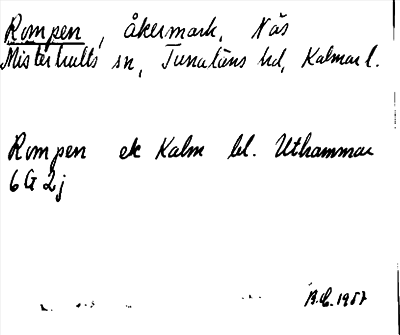 Rompen, åkermark, Näs
Misterhults sn, Tunaläns hd, Kalmar l.
Rompen ek Kalm bl. Uthammar
6G2j
B.E. 1957